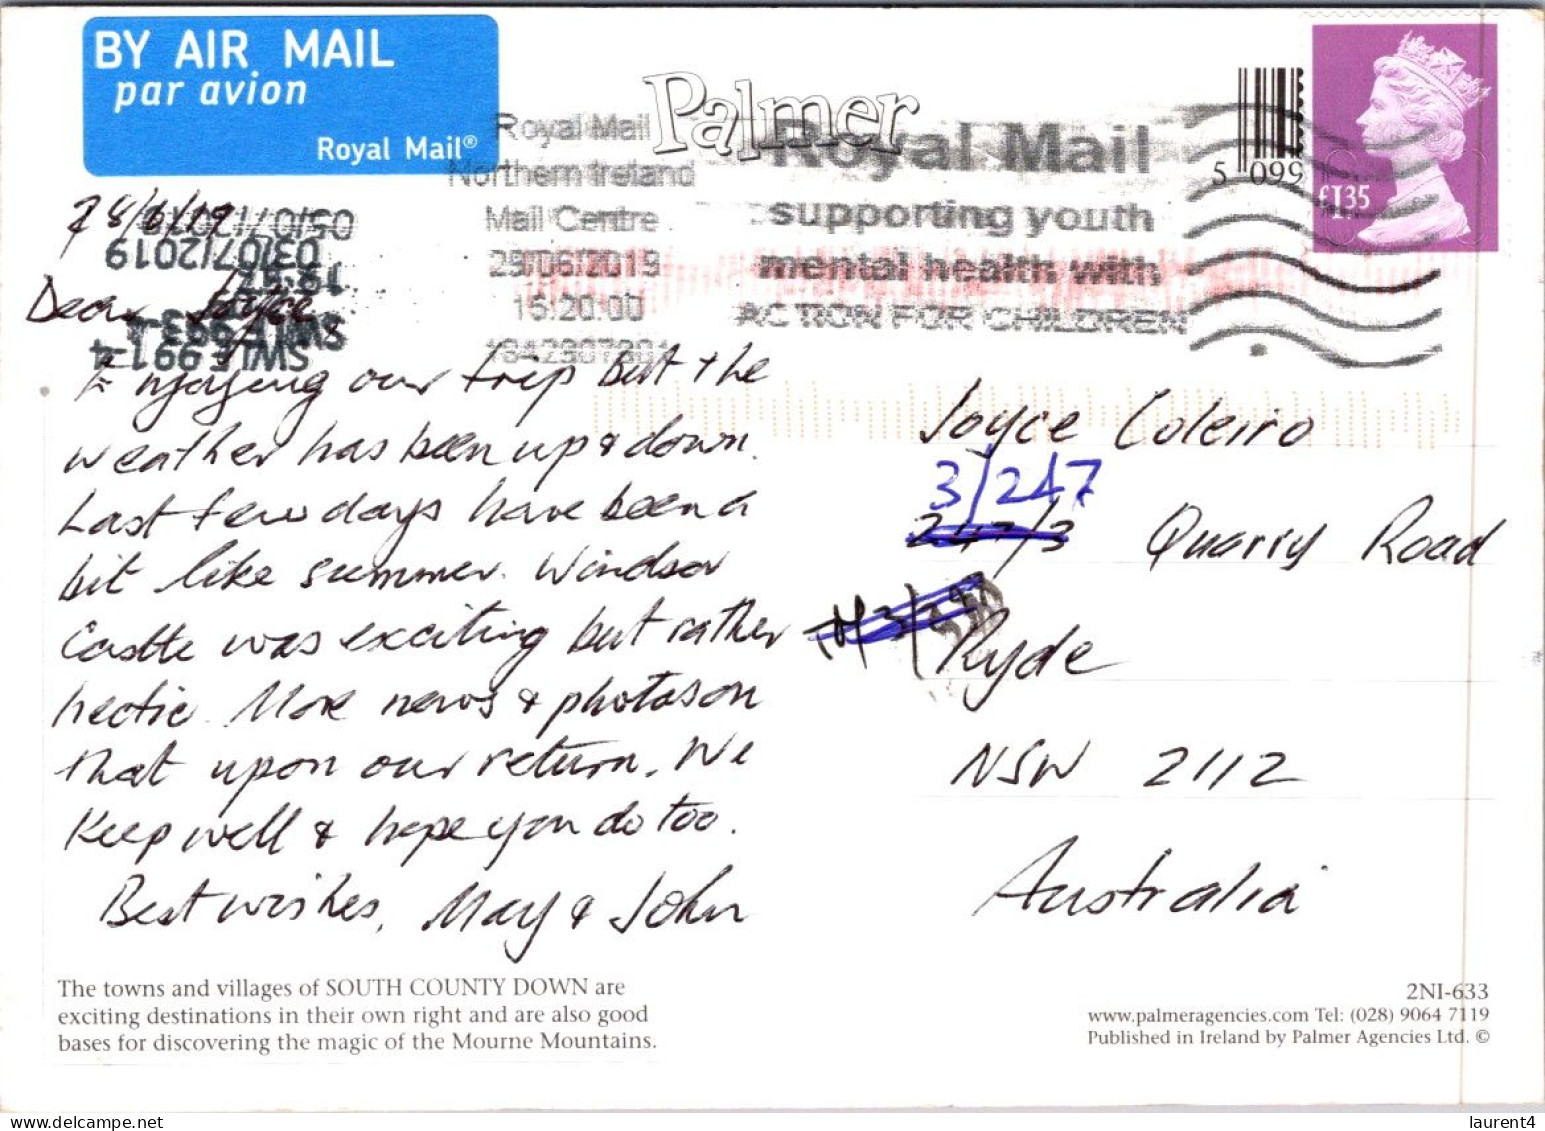 BY AIR MAIL
par avion
Royal Mail®
Palmer
Royal Mail
Northern Ireland
Mail Centre
29/06/2019
15:20:00
Royal Mail
supporting youth
mental health with
ACTION FOR CHILDREN
5 099
£1.35
28/6/19
05/07/2019
03/07/2019
SWLF 993-4
SWLF 991-4
Dear Joyce,
Enjoying our trip but the
weather has been up & down.
Last few days have been a
bit like summer. Windsor
Castle was exciting but rather
hectic. More news & photos on
that upon our return. We
keep well & hope you do too.
Best wishes, May & John
Joyce Coleiro
3/247
247/3 Quarry Road
Ryde
NSW 2112
Australia
The towns and villages of SOUTH COUNTY DOWN are
exciting destinations in their own right and are also good
bases for discovering the magic of the Mourne Mountains.
2NI-633
www.palmeragencies.com Tel: (028) 9064 7119
Published in Ireland by Palmer Agencies Ltd. ©
laurent4